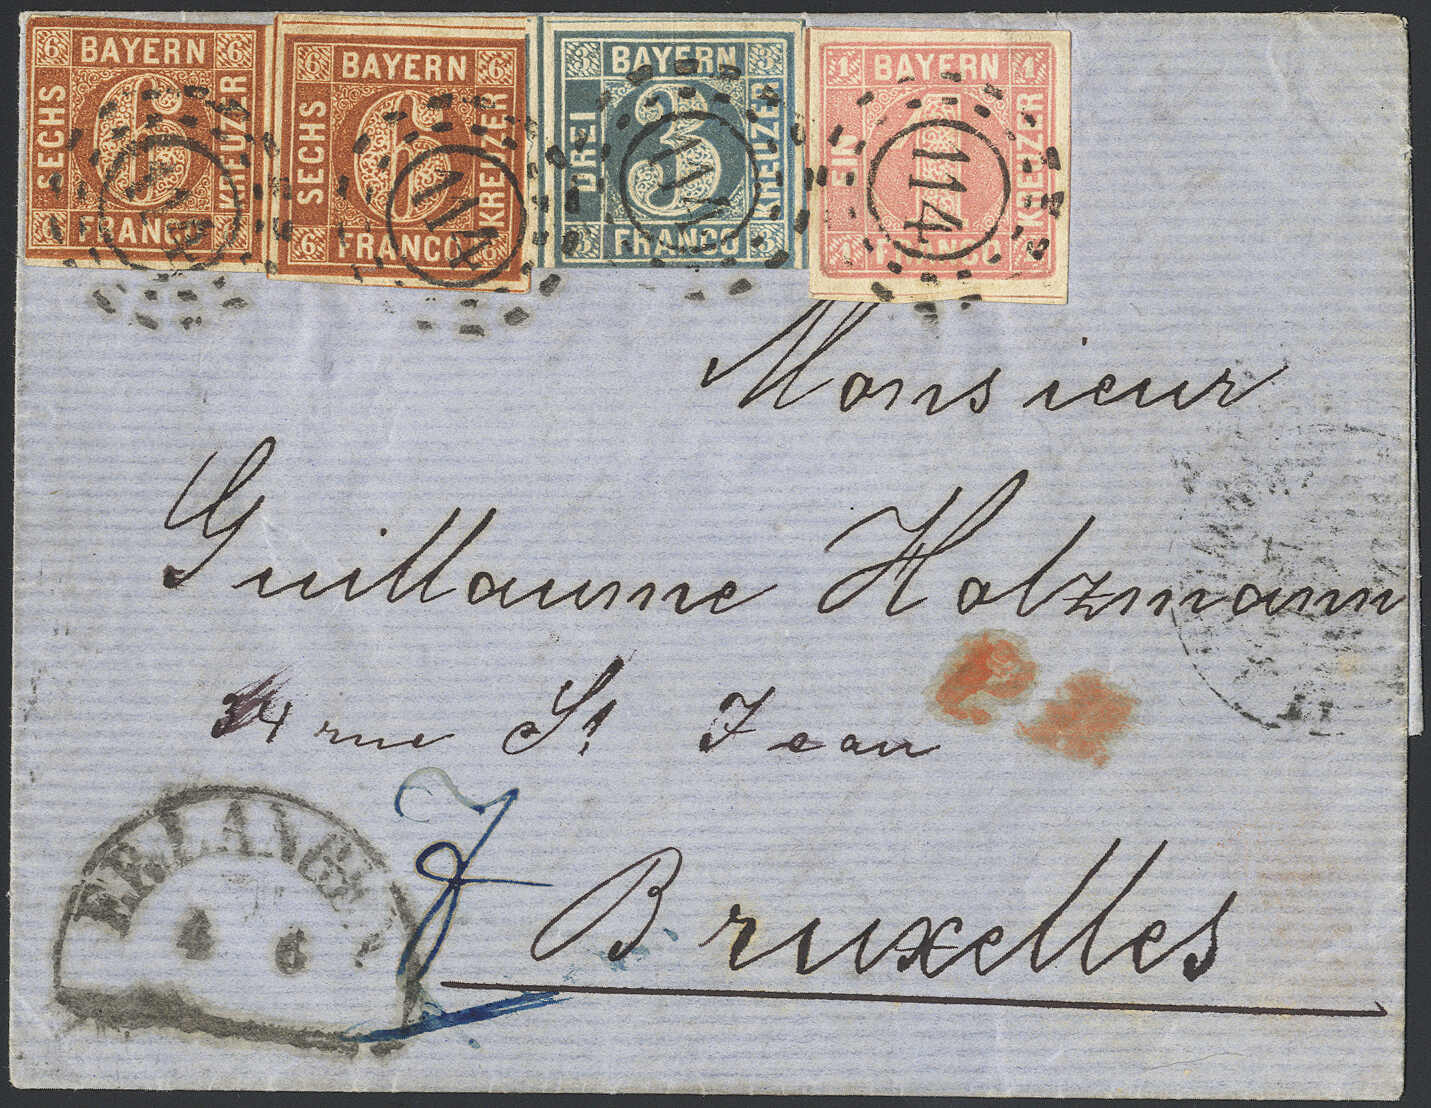 6 BAYERN 6
SECHS
6
KREUZER
6 FRANCO
114
6 BAYERN 6
SECHS
6
KREUZER
6 FRANCO 6
114
3 BAYERN 3
DREI
3
KREUZER
3 FRANCO 3
114
1 BAYERN 1
EIN
1
KREUZER
1 FRANCO 1
114
Monsieur
Guillaume Holzmann
34 rue St Jean
Bruxelles
ERLANGEN
4 6